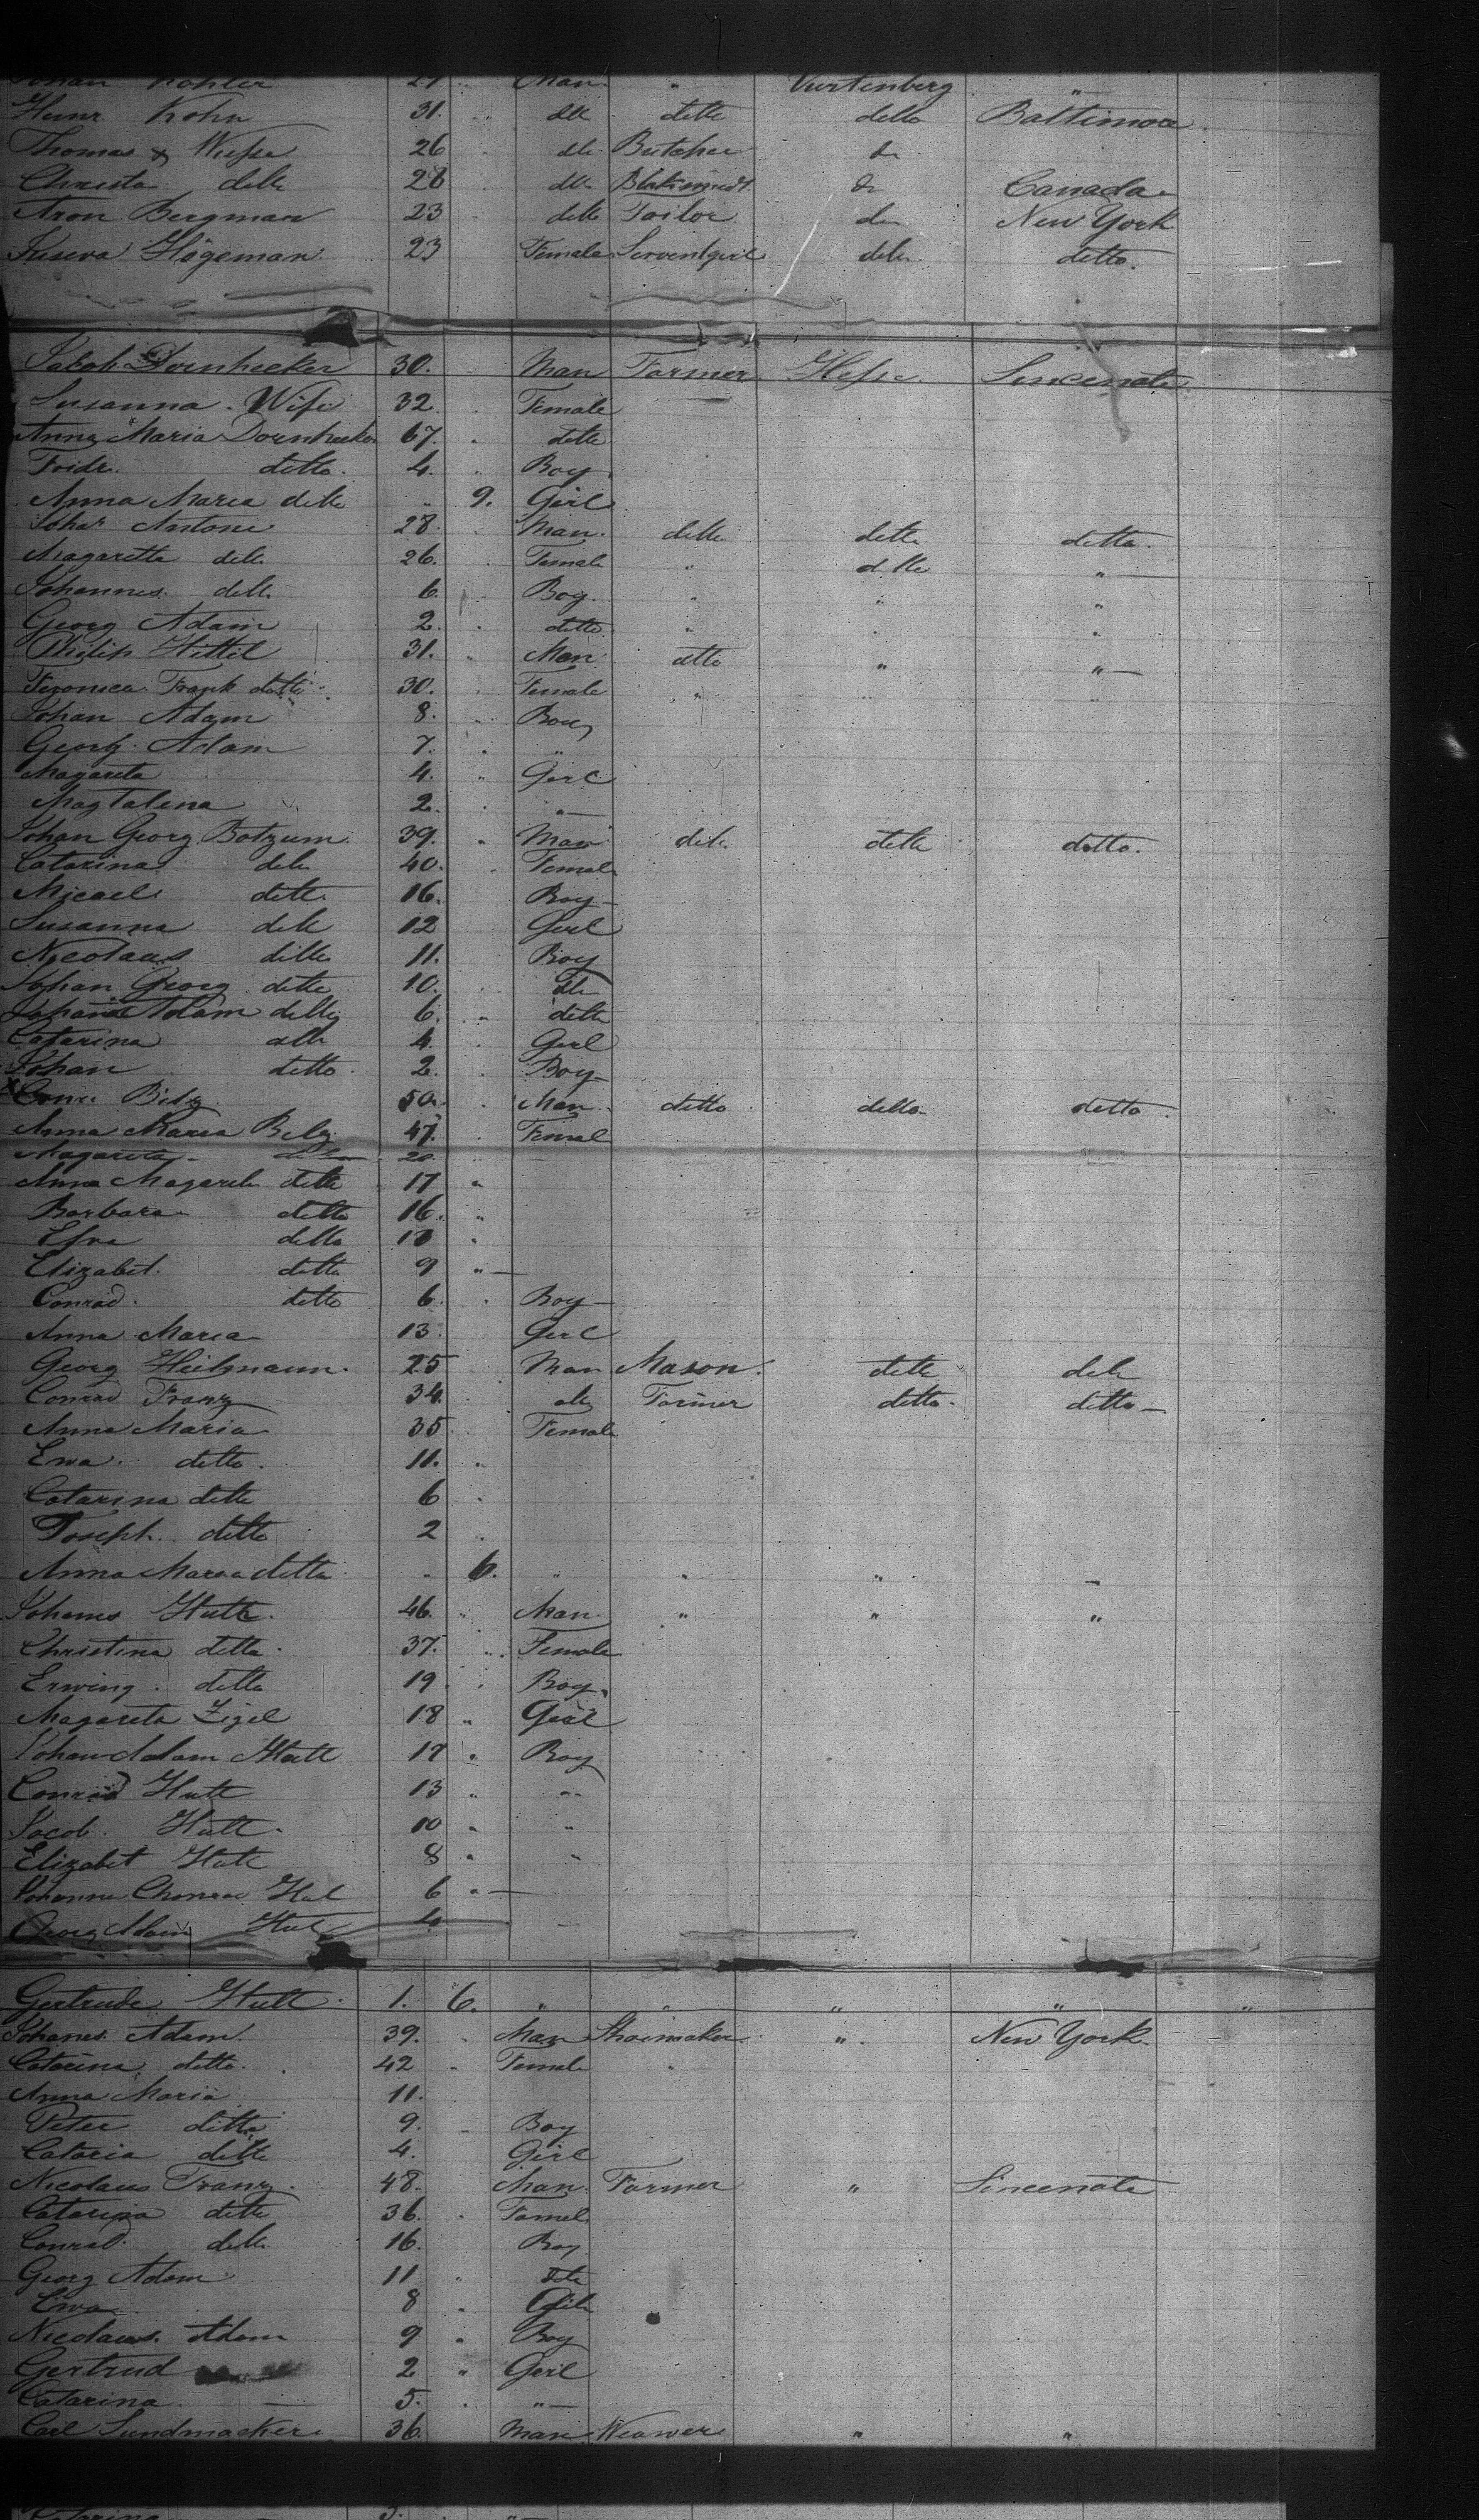 Johan Kohler 27 " Man " Vurtenberg "
Heinr Kohn 31. " dtto ditto ditto Baltimore.
Thomas & Weisse 26 " dtto Butcher do
Christa ditto 28 dtto Blaksmidt do Canada
Aron Bergman 23 ditto Tailor do New York
Hageman 23 Female Serventgirl ditto ditto.
Jakob Dornhecker 30. Man Farmer Hesse. Sincenate
Susanna. Wife 32 Female
Anna Maria Dornhecker 67. " ditto
Fridr. ditto. 4. " Boy
Anna Maria ditto " 9. Girl
Johan Antone 28. Man. ditto ditto ditto.
Magaretta ditto 26. Female " ditto "
Johannes. ditto 6. Boy. " " "
Georg Adam 2. " ditto " " "
Philip Hittel 31. " Man ditto " "
Feronica Frank ditto 30. Female " " "
Johan Adam 8. " Boy
Georg. Adam 7. " "
Magareta 4. " Girl
Magtalena 2. " "
Johan Georg Botzum. 39. " Man ditto ditto ditto.
Catarina ditto 40. " Femal
Micael. ditto 16. Boy
Susanna ditto 12 Girl
Nicolaus ditto 11. Boy
Johan Georg ditto 10. dto
Johane Adam ditto 6. " ditto
Catarina ditto 4. Girl
Johan ditto. 2. Boy
50. Man. ditto ditto ditto.
Anna Maria 47. Femal
Magareta 20
Anna Magareta ditto 17 "
Barbara ditto 16. "
ditto "
Elizabet. ditto 9 "
Conrad. ditto 6. " Boy
Anna Maria 13. Girl
Georg Heilmann. 25 Man Mason. ditto ditto
Conrad Franz 34. dto Farmer ditto. ditto
Anna Maria 35 Female
Ewa. ditto. 11. "
Catarina ditto 6 "
Joseph. ditto 2 "
Anna Maria ditto. " 6. " " " "
Johanes Hutt. 46. " Man " " "
Christina ditto. 37. " Female
Erwing. ditto 19. " Boy
Magareta Zigel 18 " Girl
Johan Adam Hutt 17 " Boy
Conrad Hutt 13 " "
Jacob. Hutt. 10 " "
Elizabet Hutt 8 " "
Johanne Chonrad Hut 6 "
Georg Adam Hut 4
Gertrude Hutt. 1. 6. " " " " "
Johanes Adam. 39. " Man Shoemaker " New York.
Catarina ditto. 42 " Female "
Anna Maria 11.
Peter ditto 9. " Boy
Cataria ditto 4. Girl
Nicolaus Franz. 48. Man. Farmer " Sincenate
Catarina ditto 36. " Famel
Conrad. ditto 16. Boy
Georg Adam 11 " dito
Ewa 8 " Girl
Nicolaus. Adam 9 " Boy
Gertrud 2 " Gerl
Catarina 5. " "
Carl Sundmacker 36. Man Weawer " "
Catarina 5. "